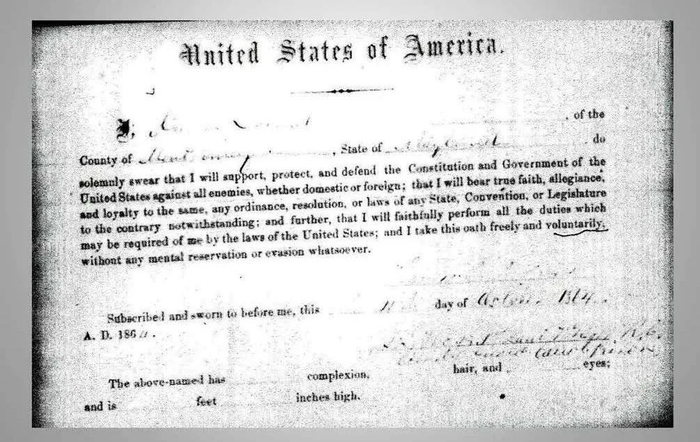 United States of America.
I, of the
County of , State of Maryland do
solemnly swear that I will support, protect, and defend the Constitution and Government of the
United States against all enemies, whether domestic or foreign; that I will bear true faith, allegiance,
and loyalty to the same, any ordinance, resolution, or laws of any State, Convention, or Legislature
to the contrary notwithstanding; and further, that I will faithfully perform all the duties which
may be required of me by the laws of the United States; and I take this oath freely and voluntarily,
without any mental reservation or evasion whatsoever.
Subscribed and sworn to before me, this day of 1864.
A. D. 186 .
The above-named has complexion, hair, and eyes;
and is feet inches high.